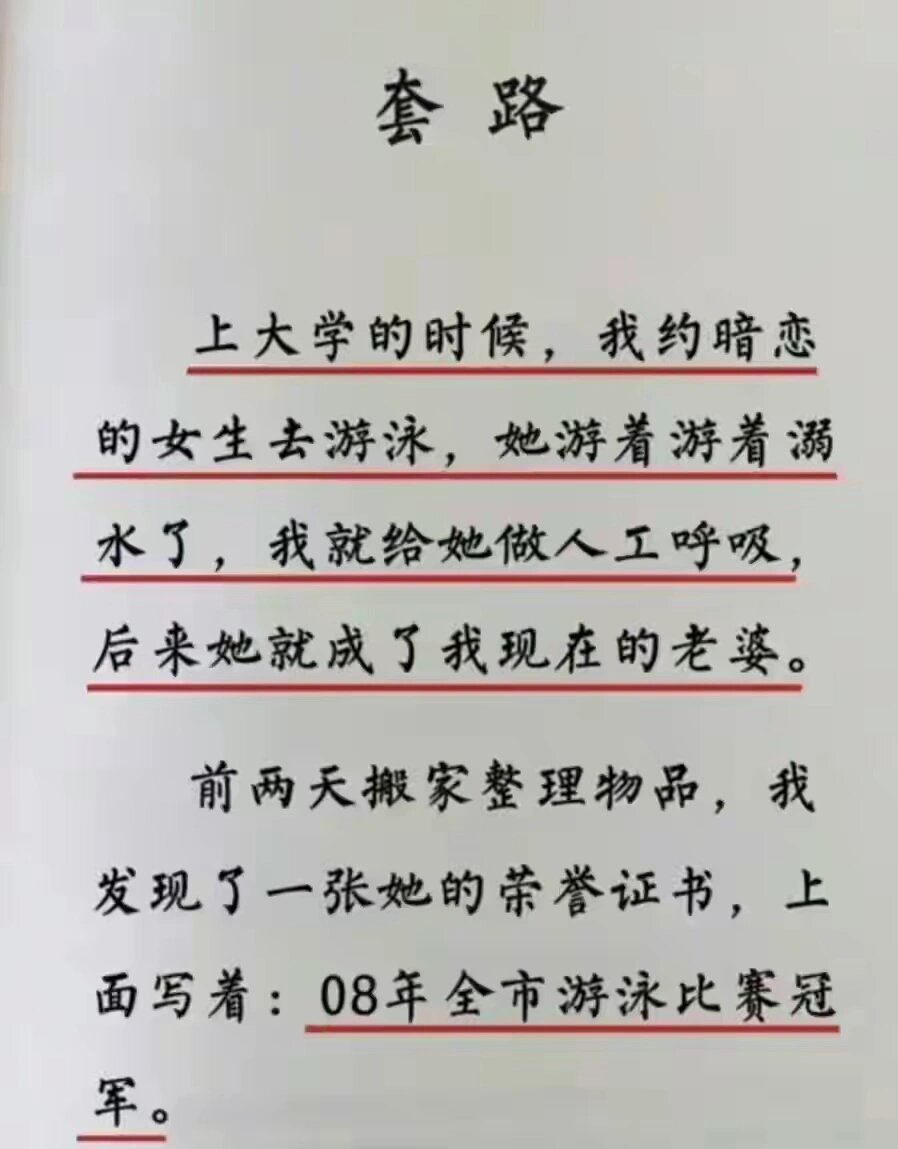 套路
上大学的时候，我约暗恋
的女生去游泳，她游着游着溺
水了，我就给她做人工呼吸，
后来她就成了我现在的老婆。
前两天搬家整理物品，我
发现了一张她的荣誉证书，上
面写着：08年全市游泳比赛冠
军。